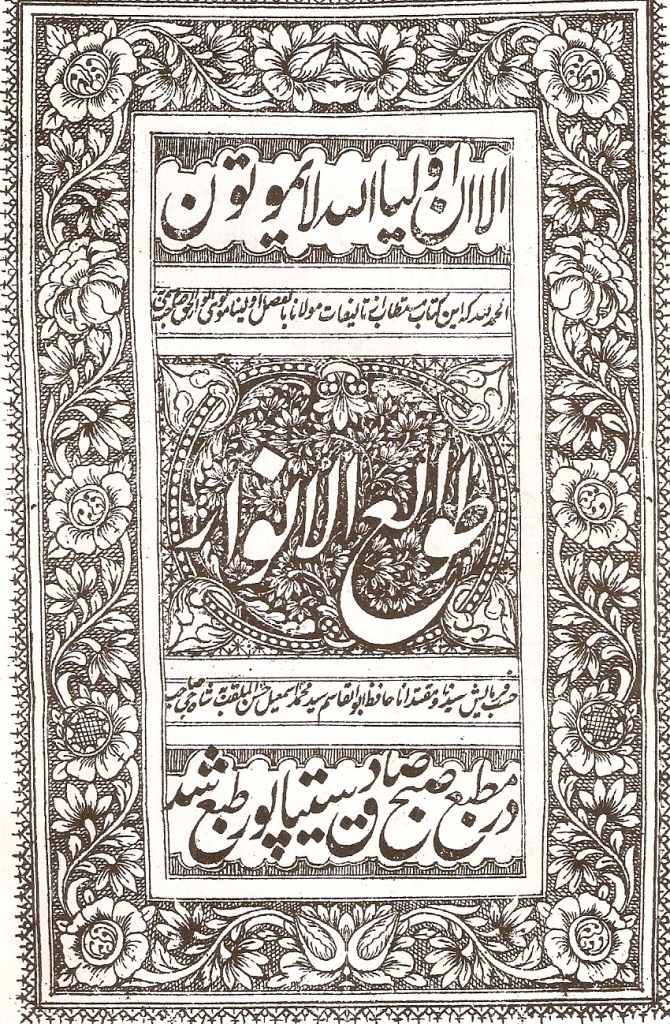 الا ان اولیا الله لا یموتون
الحمد لله که این کتاب مستطاب از تالیفات مولانا بالفضل اولینا مولوی صاحب
طوالع الانوار
حسب فرمایش سیدنا و مقتدانا حافظ ابو القاسم سید محمد اسمعیل حسن الملقب به شاه جی صاحب
در مطبع صبح صادق سیتاپور طبع شد